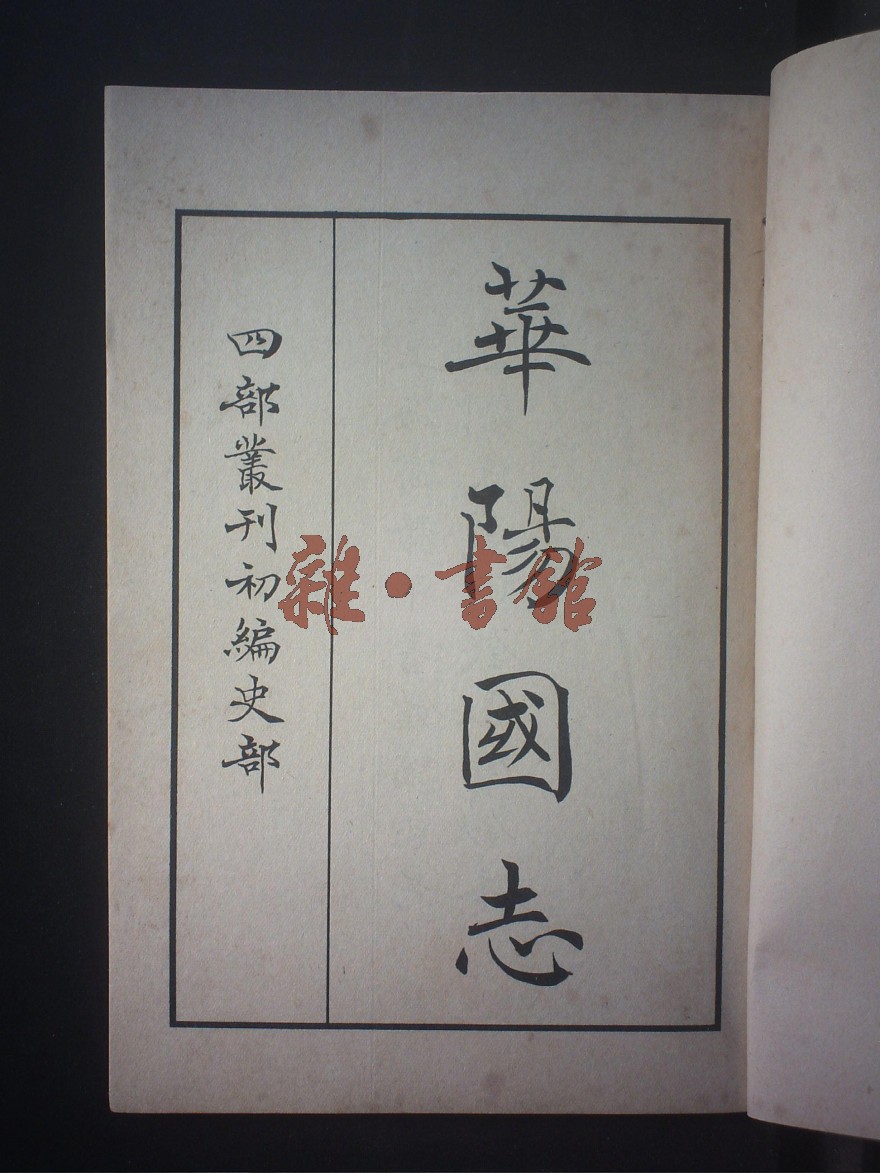 華陽國志
四部叢刊初編史部
雜·書館